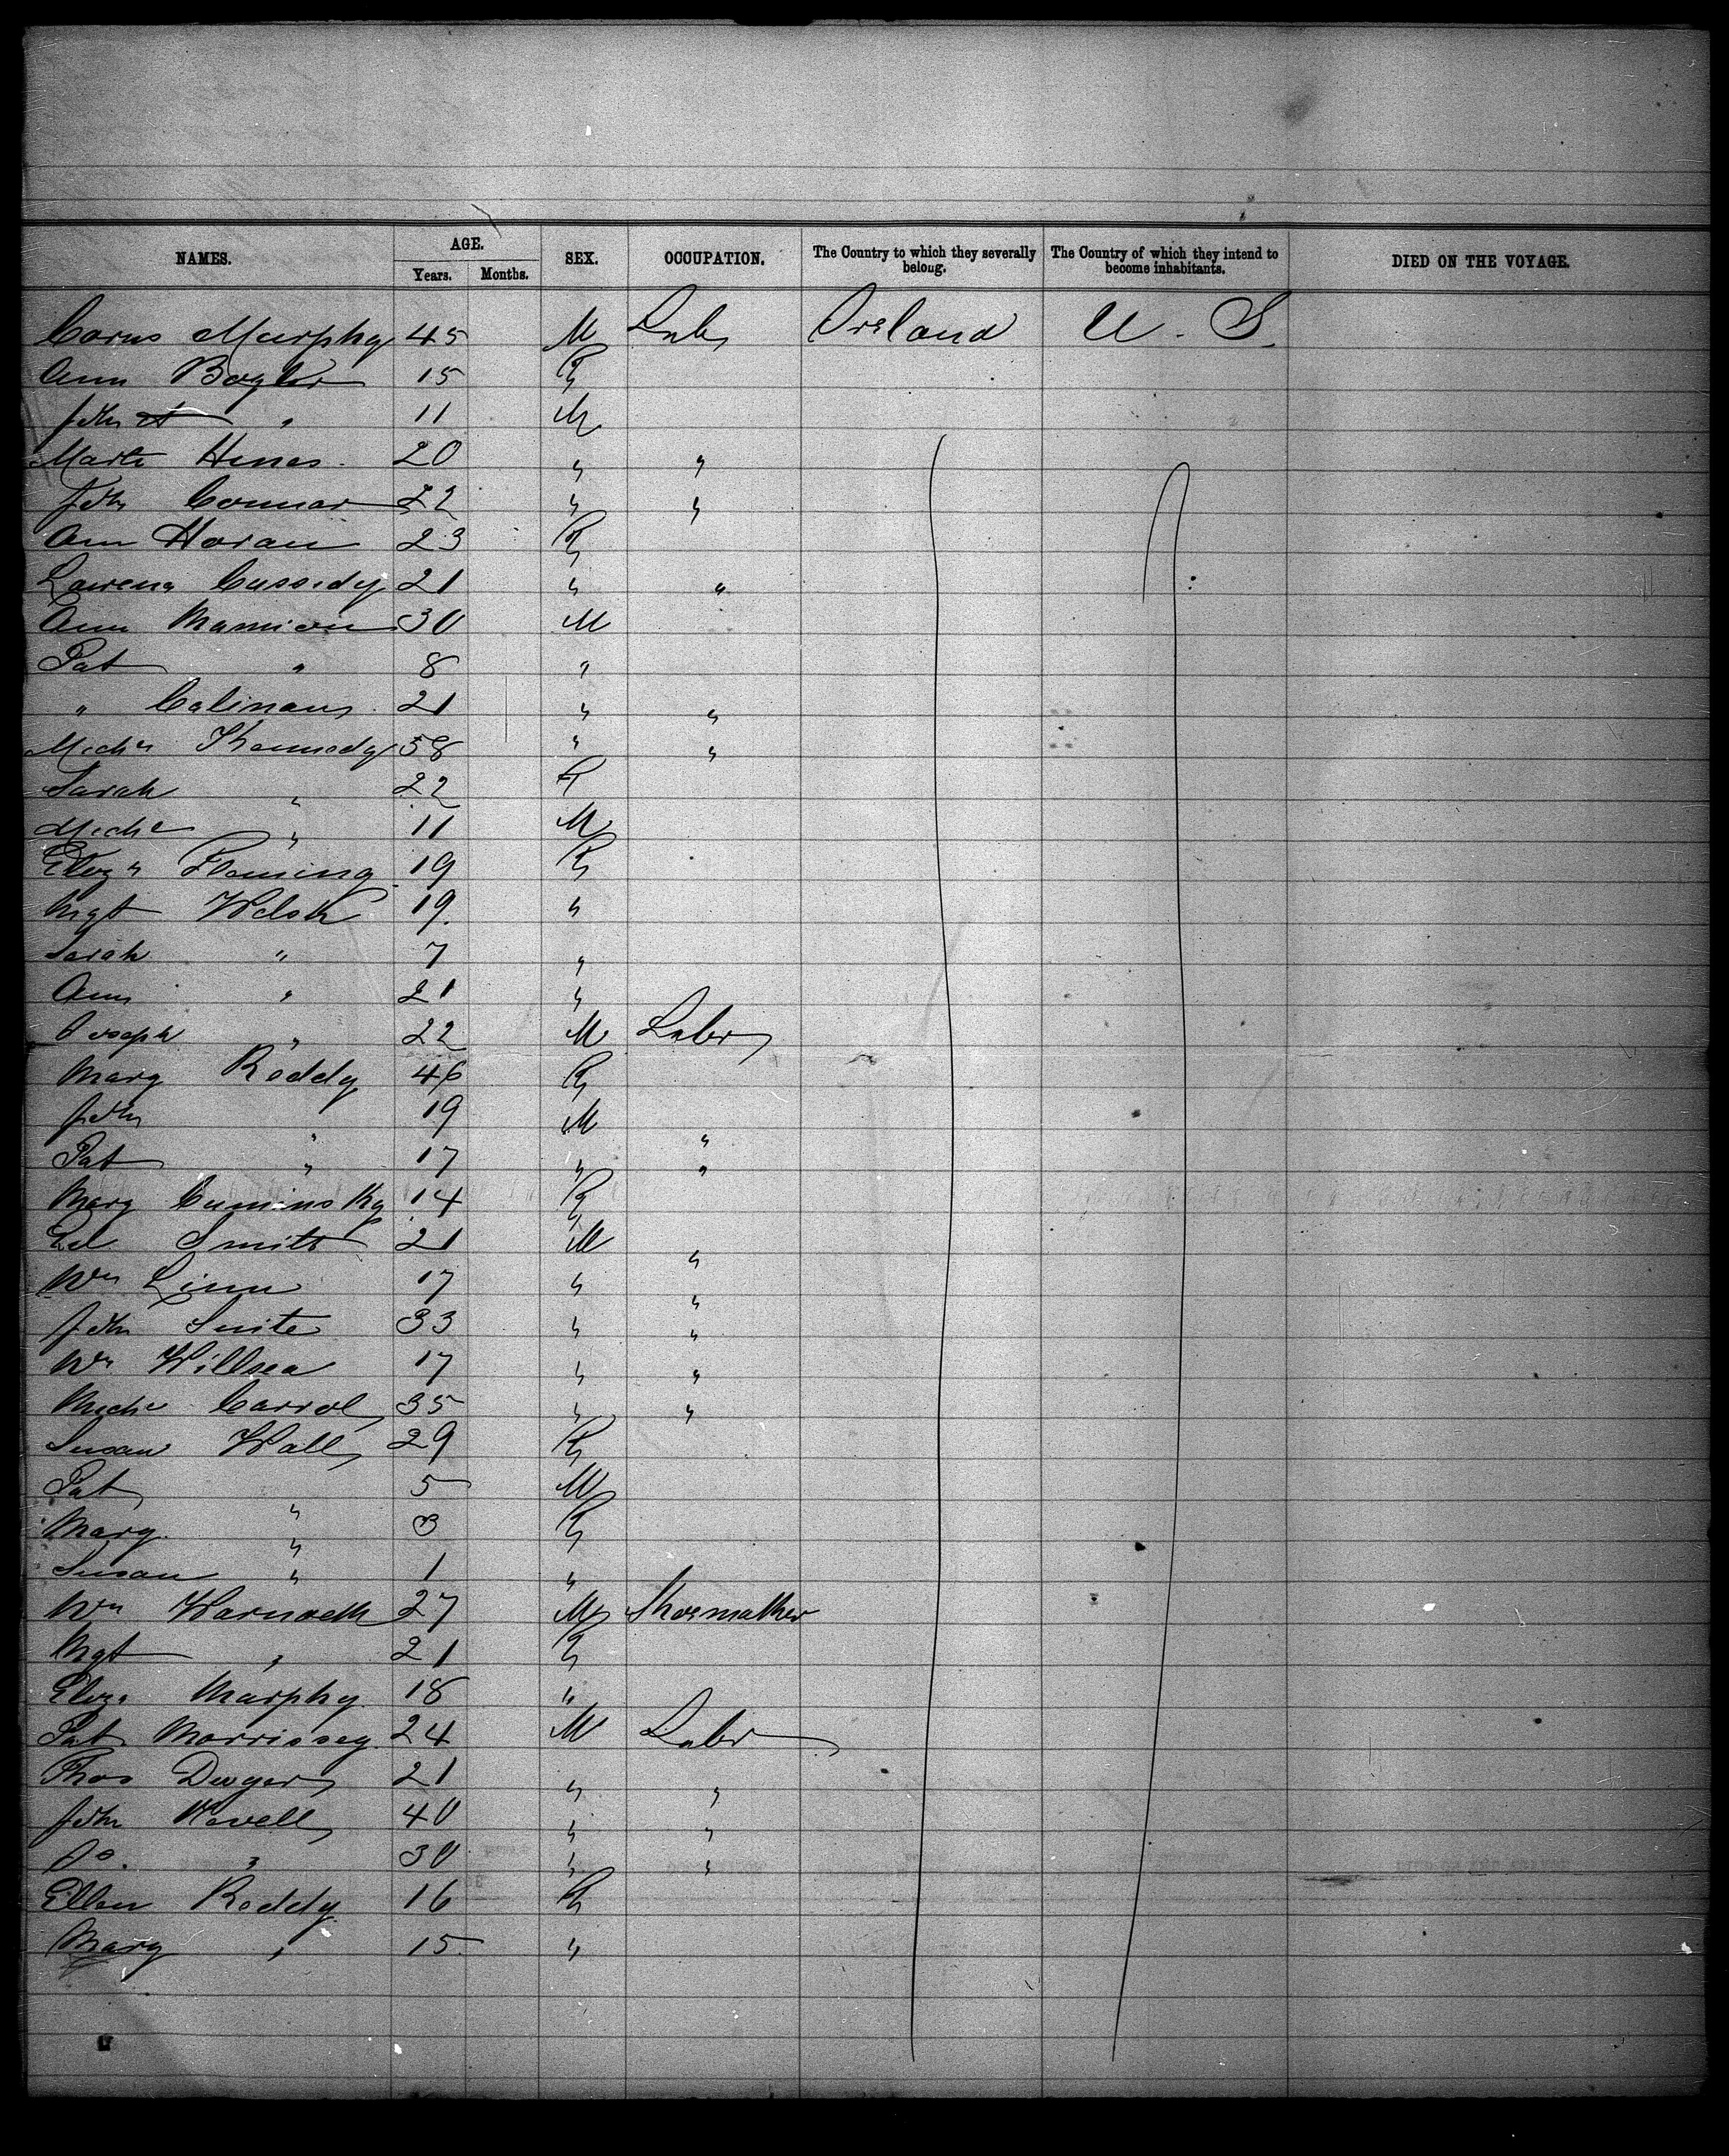 NAMES. AGE. SEX. OCCUPATION. The Country to which they severally belong. The Country of which they intend to become inhabitants. DIED ON THE VOYAGE.
Years. Months.
Murphy 45 M Lab Ireland U. S.
Ann 15 F
John " 11 M
20 " "
John Connar 22 " "
Ann Horan 23 F
Cassidy 21 " "
Ann Mannion 30 M
Pat " 8 "
" 21 " "
Michl Kennedy 58 " "
Sarah " 22 F
Michl " 11 M
Eliza Fleming 19 F
Mgt Welsh 19 "
Sarah " 7 "
Ann " 21 "
Joseph " 22 M Labr
Mary Reddy 46 F
John " 19 M "
Pat " 17 " "
Mary 14 F
Ed Smith 21 M "
Wm Linn 17 " "
John 33 " "
Wm 17 " "
Michl Carrol 35 " "
Susan Wall 29 F
Pat " 5 M
Mary " 3 F
Susan " 1 "
Wm 27 M Shoemaker
Mgt " 21 F
Eliza Murphy 18 "
Pat Morrissey 24 M Labr
Thos Dwyer 21 " "
John 40 " "
Do. " 30 " "
Ellen Reddy 16 F
Mary " 15 "